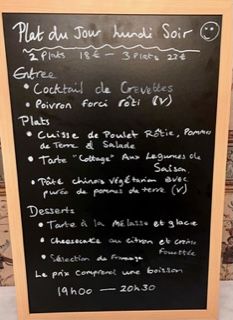 Plat du Jour Lundi Soir
2 Plats 18€ — 3 Plats 22€
Entrée
• Cocktail de Crevettes
• Poivron farci rôti (V)
Plats
• Cuisse de Poulet Rôtie, Pommes
de Terre & Salade
• Tarte "Cottage" Aux Legumes de
Saison
• Pâté chinois végétarien avec
purée de pommes de terre (V)
Desserts
• Tarte à la Mélasse et glace
• Cheesecake au citron et crème
Fouettée
• Sélection de fromage
Le prix comprend une boisson
19h00 — 20h30